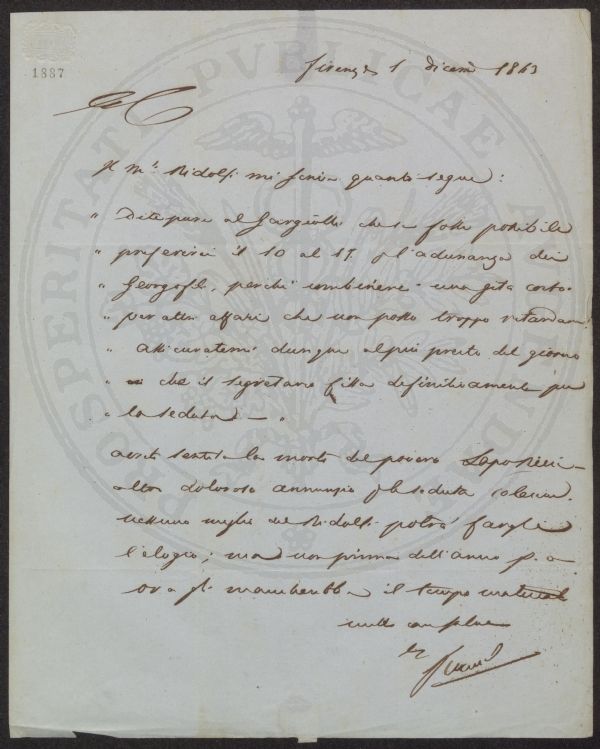 1887
Firenze 1 dicem 1863
Il M. Ridolfi mi scrive quanto segue:
" Dite pure al che se fosse possibile
" preferirei il 10 al 17. p l'adunanza dei
" Georgofili, perchè combinerei una gita costà
" per altri affari che non posso troppo ritardare.
" Assicuratemi dunque al più presto del giorno
" che il segretario fissa definitivamente per
" la seduta. — "
Avrete sentito la morte del povero Lapo Ricci —
altro doloroso annunzio p la seduta solenne.
Nessuno meglio del Ridolfi potrà fargli
l'elogio; ma non prima dell'anno p. a
ora gli mancherebbe il tempo
PROSPERITATI PVBLICAE AVGENDAE